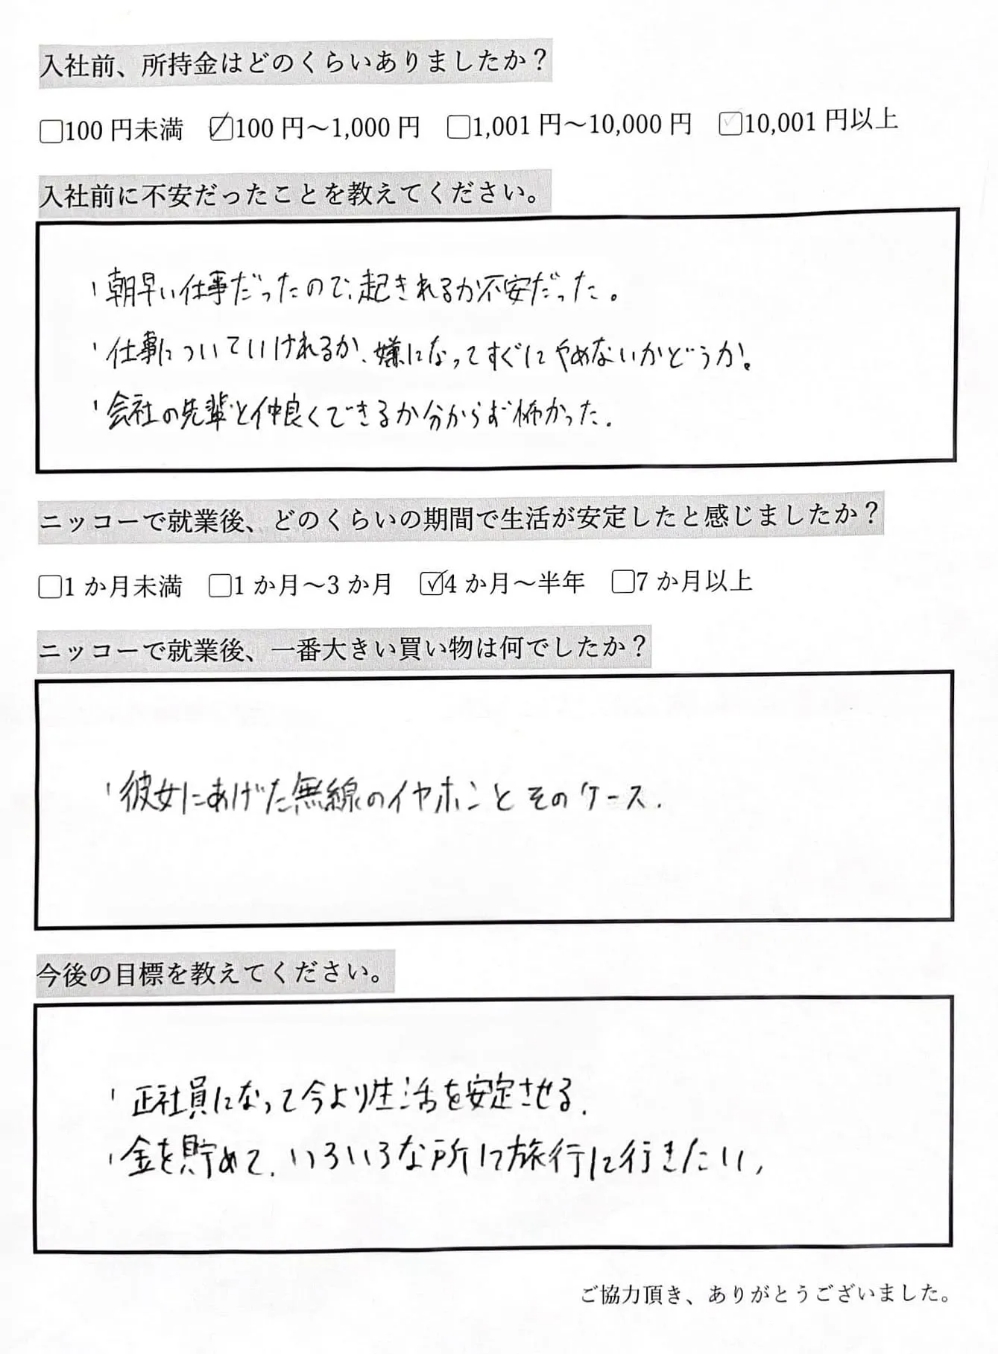 入社前、所持金はどのくらいありましたか？
□100 円未満 ☑100 円～1,000 円 □1,001 円～10,000 円 ☑10,001 円以上
入社前に不安だったことを教えてください。
' 朝早い仕事だったので、起きれるか不安だった。
' 仕事についていけれるか、嫌になってすぐにやめないかどうか。
' 会社の先輩と仲良くできるか分からず怖かった.
ニッコーで就業後、どのくらいの期間で生活が安定したと感じましたか？
□1 か月未満 □1 か月～3 か月 ☑4 か月～半年 □7 か月以上
ニッコーで就業後、一番大きい買い物は何でしたか？
' 彼女にあげた無線のイヤホンとそのケース.
今後の目標を教えてください。
' 正社員になって今より生活を安定させる.
' 金を貯めて、いろいろな所に旅行に行きたい,
ご協力頂き、ありがとうございました。